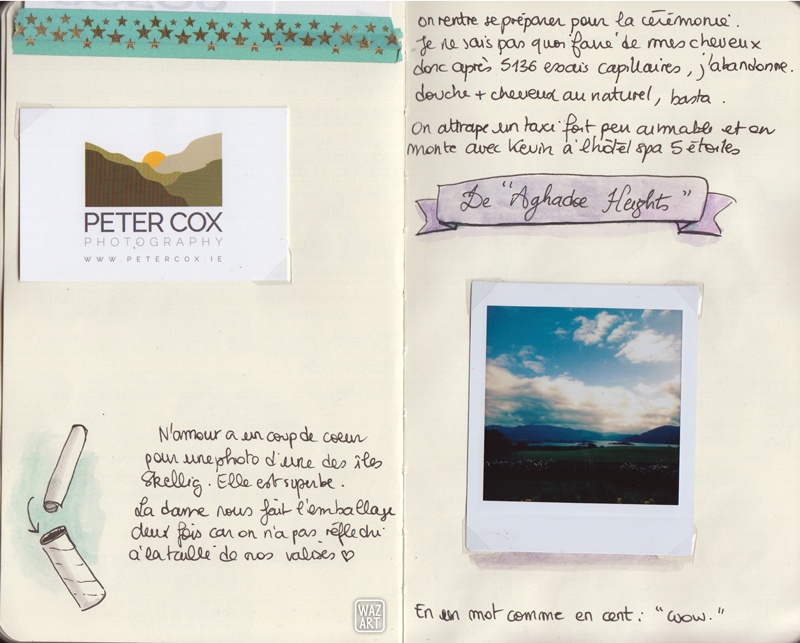 PETER COX
PHOTOGRAPHY
WWW.PETERCOX.IE
N'amour a un coup de coeur
pour une photo d'une des îles
Skellig. Elle est superbe.
La dame nous fait l'emballage
deux fois car on n'a pas réfléchi
à la taille de nos valises ♡
WAZ
ART
on rentre se préparer pour la cérémonie.
Je ne sais pas quoi faire de mes cheveux
donc après 5136 essais capillaires, j'abandonne.
douche + cheveux au naturel, basta.
On attrape un taxi fort peu aimable et on
monte avec Kevin à l'hôtel spa 5 étoiles
De "Aghadoe Heights"
En un mot comme en cent : "wow."